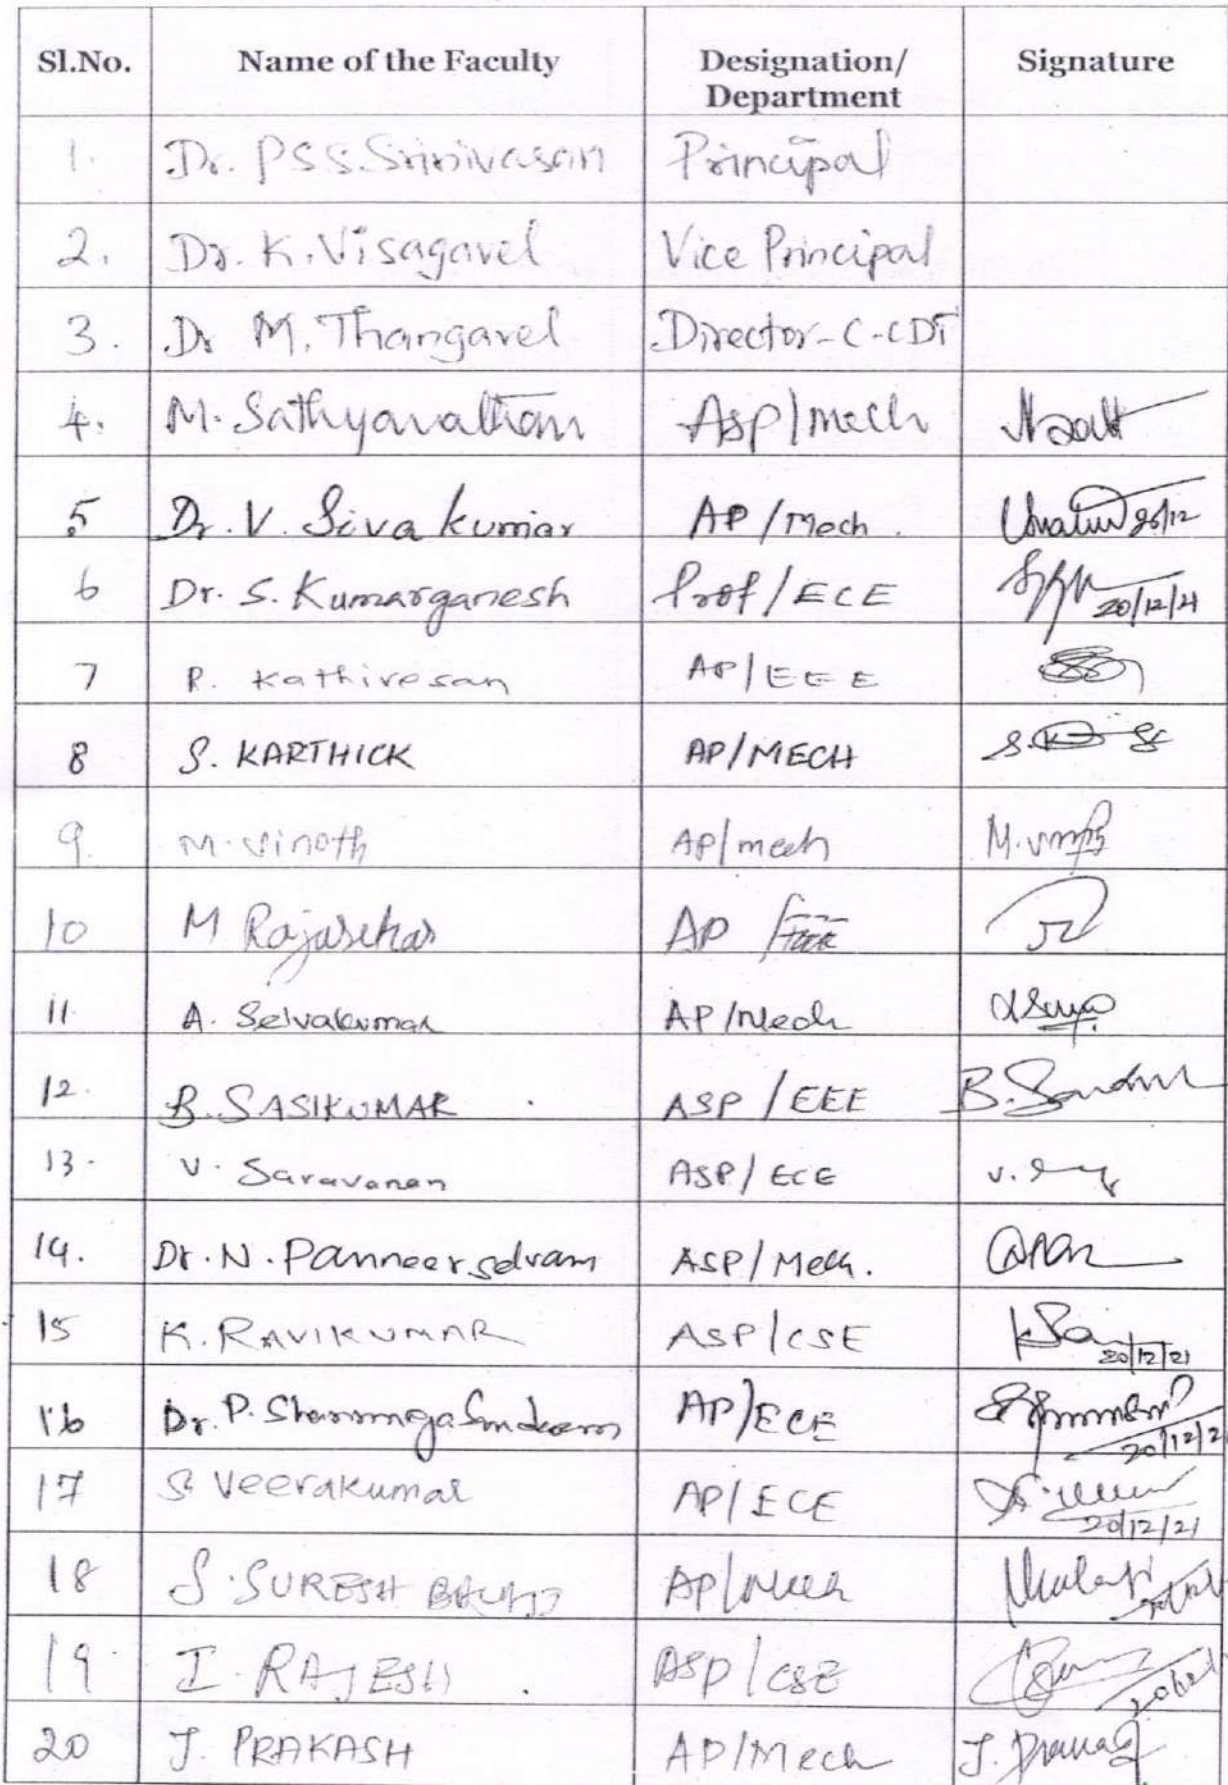 Sl.No. Name of the Faculty Designation/ Department Signature
1. Dr. P.S.S. Srinivasan Principal
2. Dr. K. Visagavel Vice Principal
3. Dr M. Thangavel Director-C-CDT
4. M. Sathyavathan Asp/mech
5 Dr. V. Sivakumar AP/Mech.
6 Dr. S. Kumarganesh Prof/ECE 20/12/21
7 R. Kathiresan AP/EEE
8 S. KARTHICK AP/MECH
9. M. Vinoth AP/mech M.
10 M Rajasekar AP
11. A. Selvakumar AP/Mech
12. B. SASIKUMAR ASP/EEE B.
13. V. Saravanan ASP/ECE V.
14. Dr. N. Panneerselvam ASP/Mech.
15 K. RAVIKUMAR ASP/CSE 20/12/21
16 Dr. P. AP/ECE
17 S. Veerakumar AP/ECE 20/12/21
18 S. SURESH AP/Mech
19. I. RAJESH ASP/CSE
20 J. PRAKASH AP/Mech J.